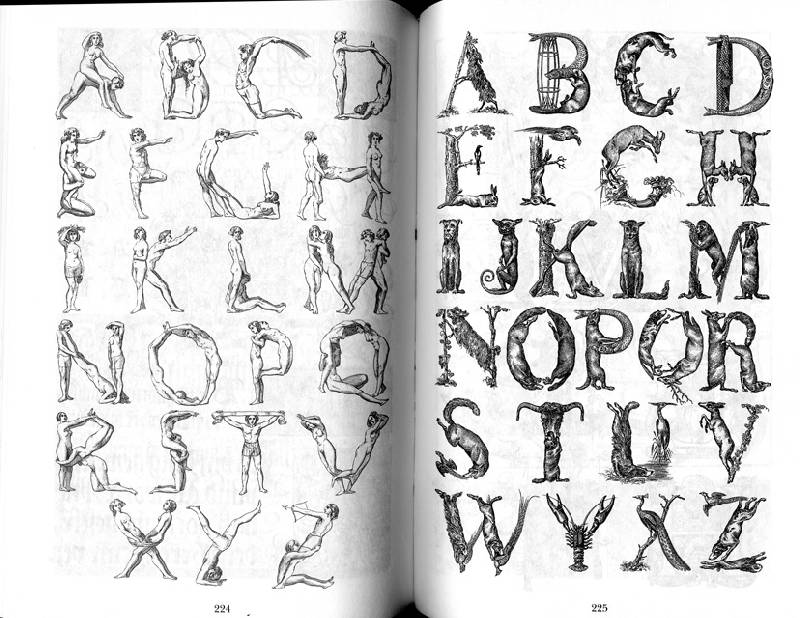 A B C D
E F G H
I K L M
N O P Q
R S T V
X Y Z
224
A B C D
E F G H
I J K L M
N O P Q R
S T U V
W Y X Z
225